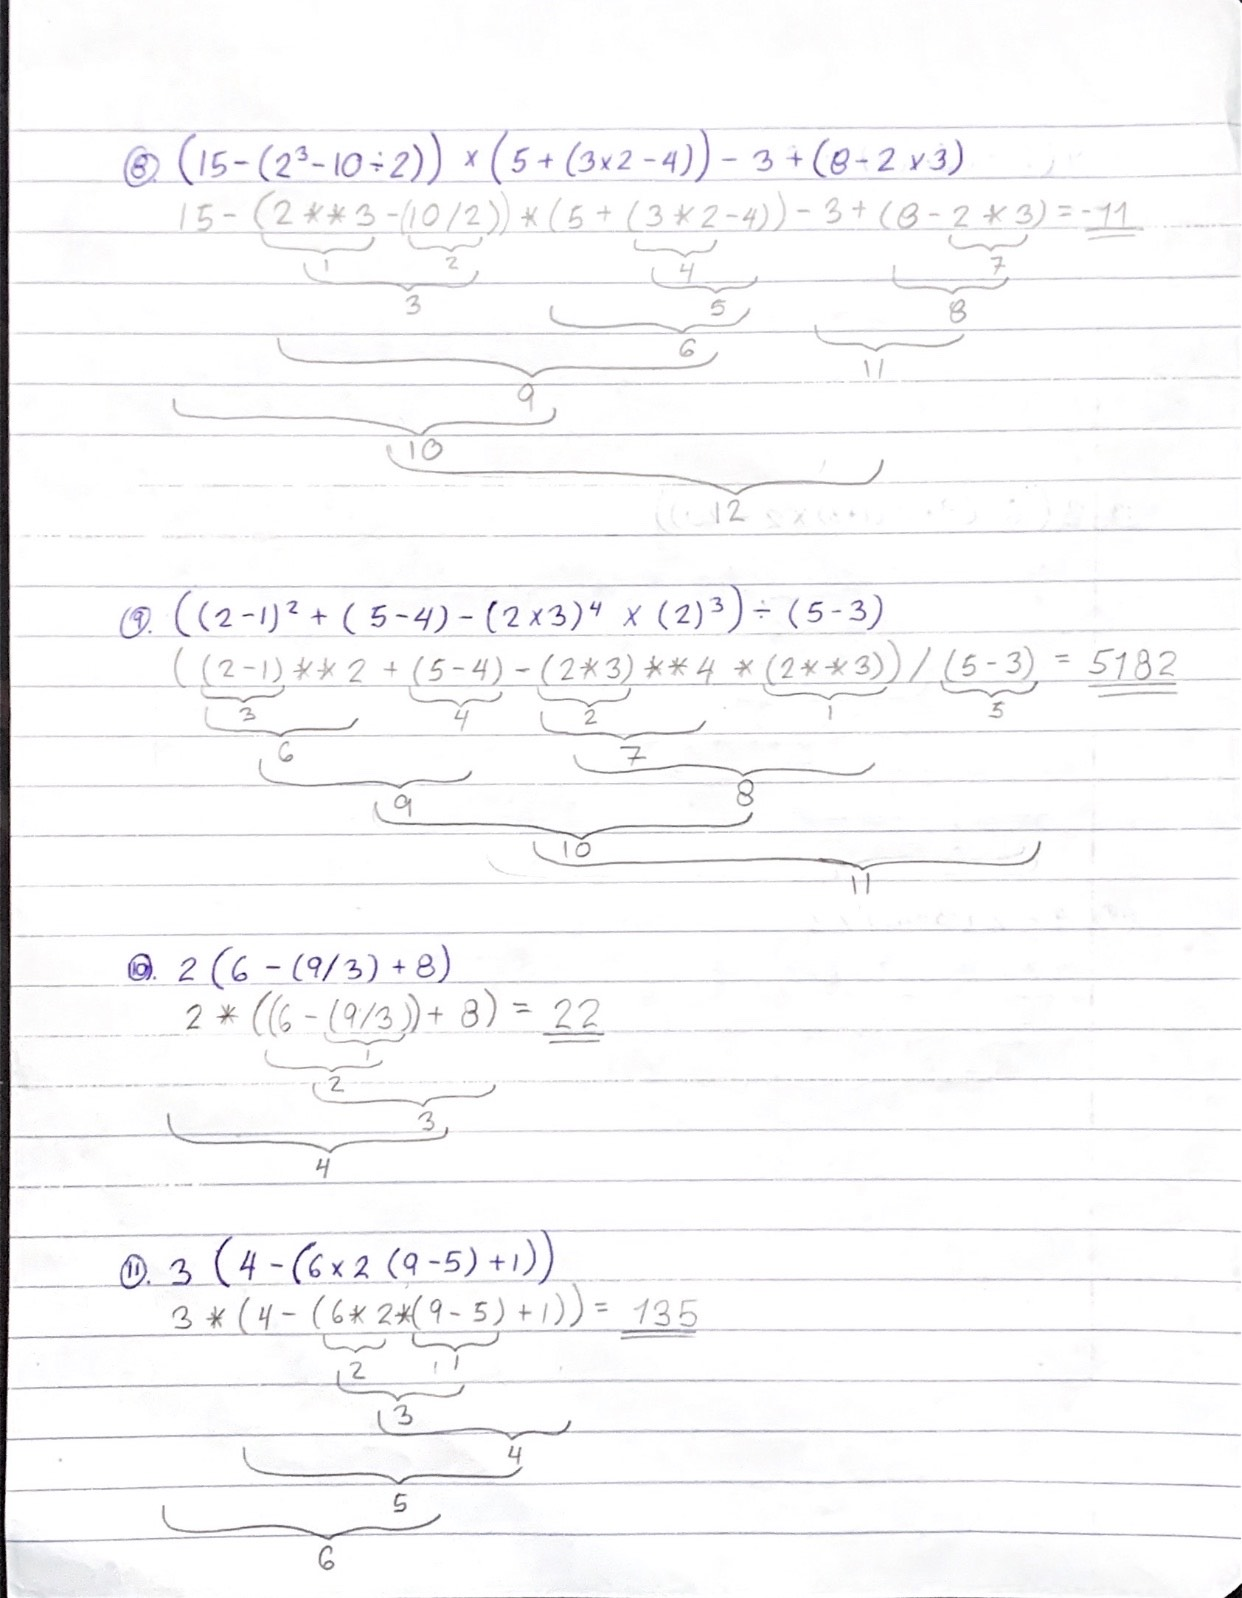 ⑧. (15-(2³-10÷2)) × (5+(3×2-4)) - 3 + (8-2×3)
15-(2**3-(10/2))*(5+(3*2-4))-3+(8-2*3)=-11
1 2 4 7
3 5 8
6 11
9
10
12
⑨. ((2-1)²+(5-4)-(2×3)⁴ × (2)³)÷(5-3)
((2-1)**2+(5-4)-(2*3)**4*(2**3))/(5-3) = 5182
3 4 2 1 5
6 7
9 8
10
11
⑩. 2(6-(9/3)+8)
2*((6-(9/3))+8) = 22
1
2
3
4
⑪. 3(4-(6×2(9-5)+1))
3*(4-(6*2*(9-5)+1)) = 135
2 1
3
4
5
6